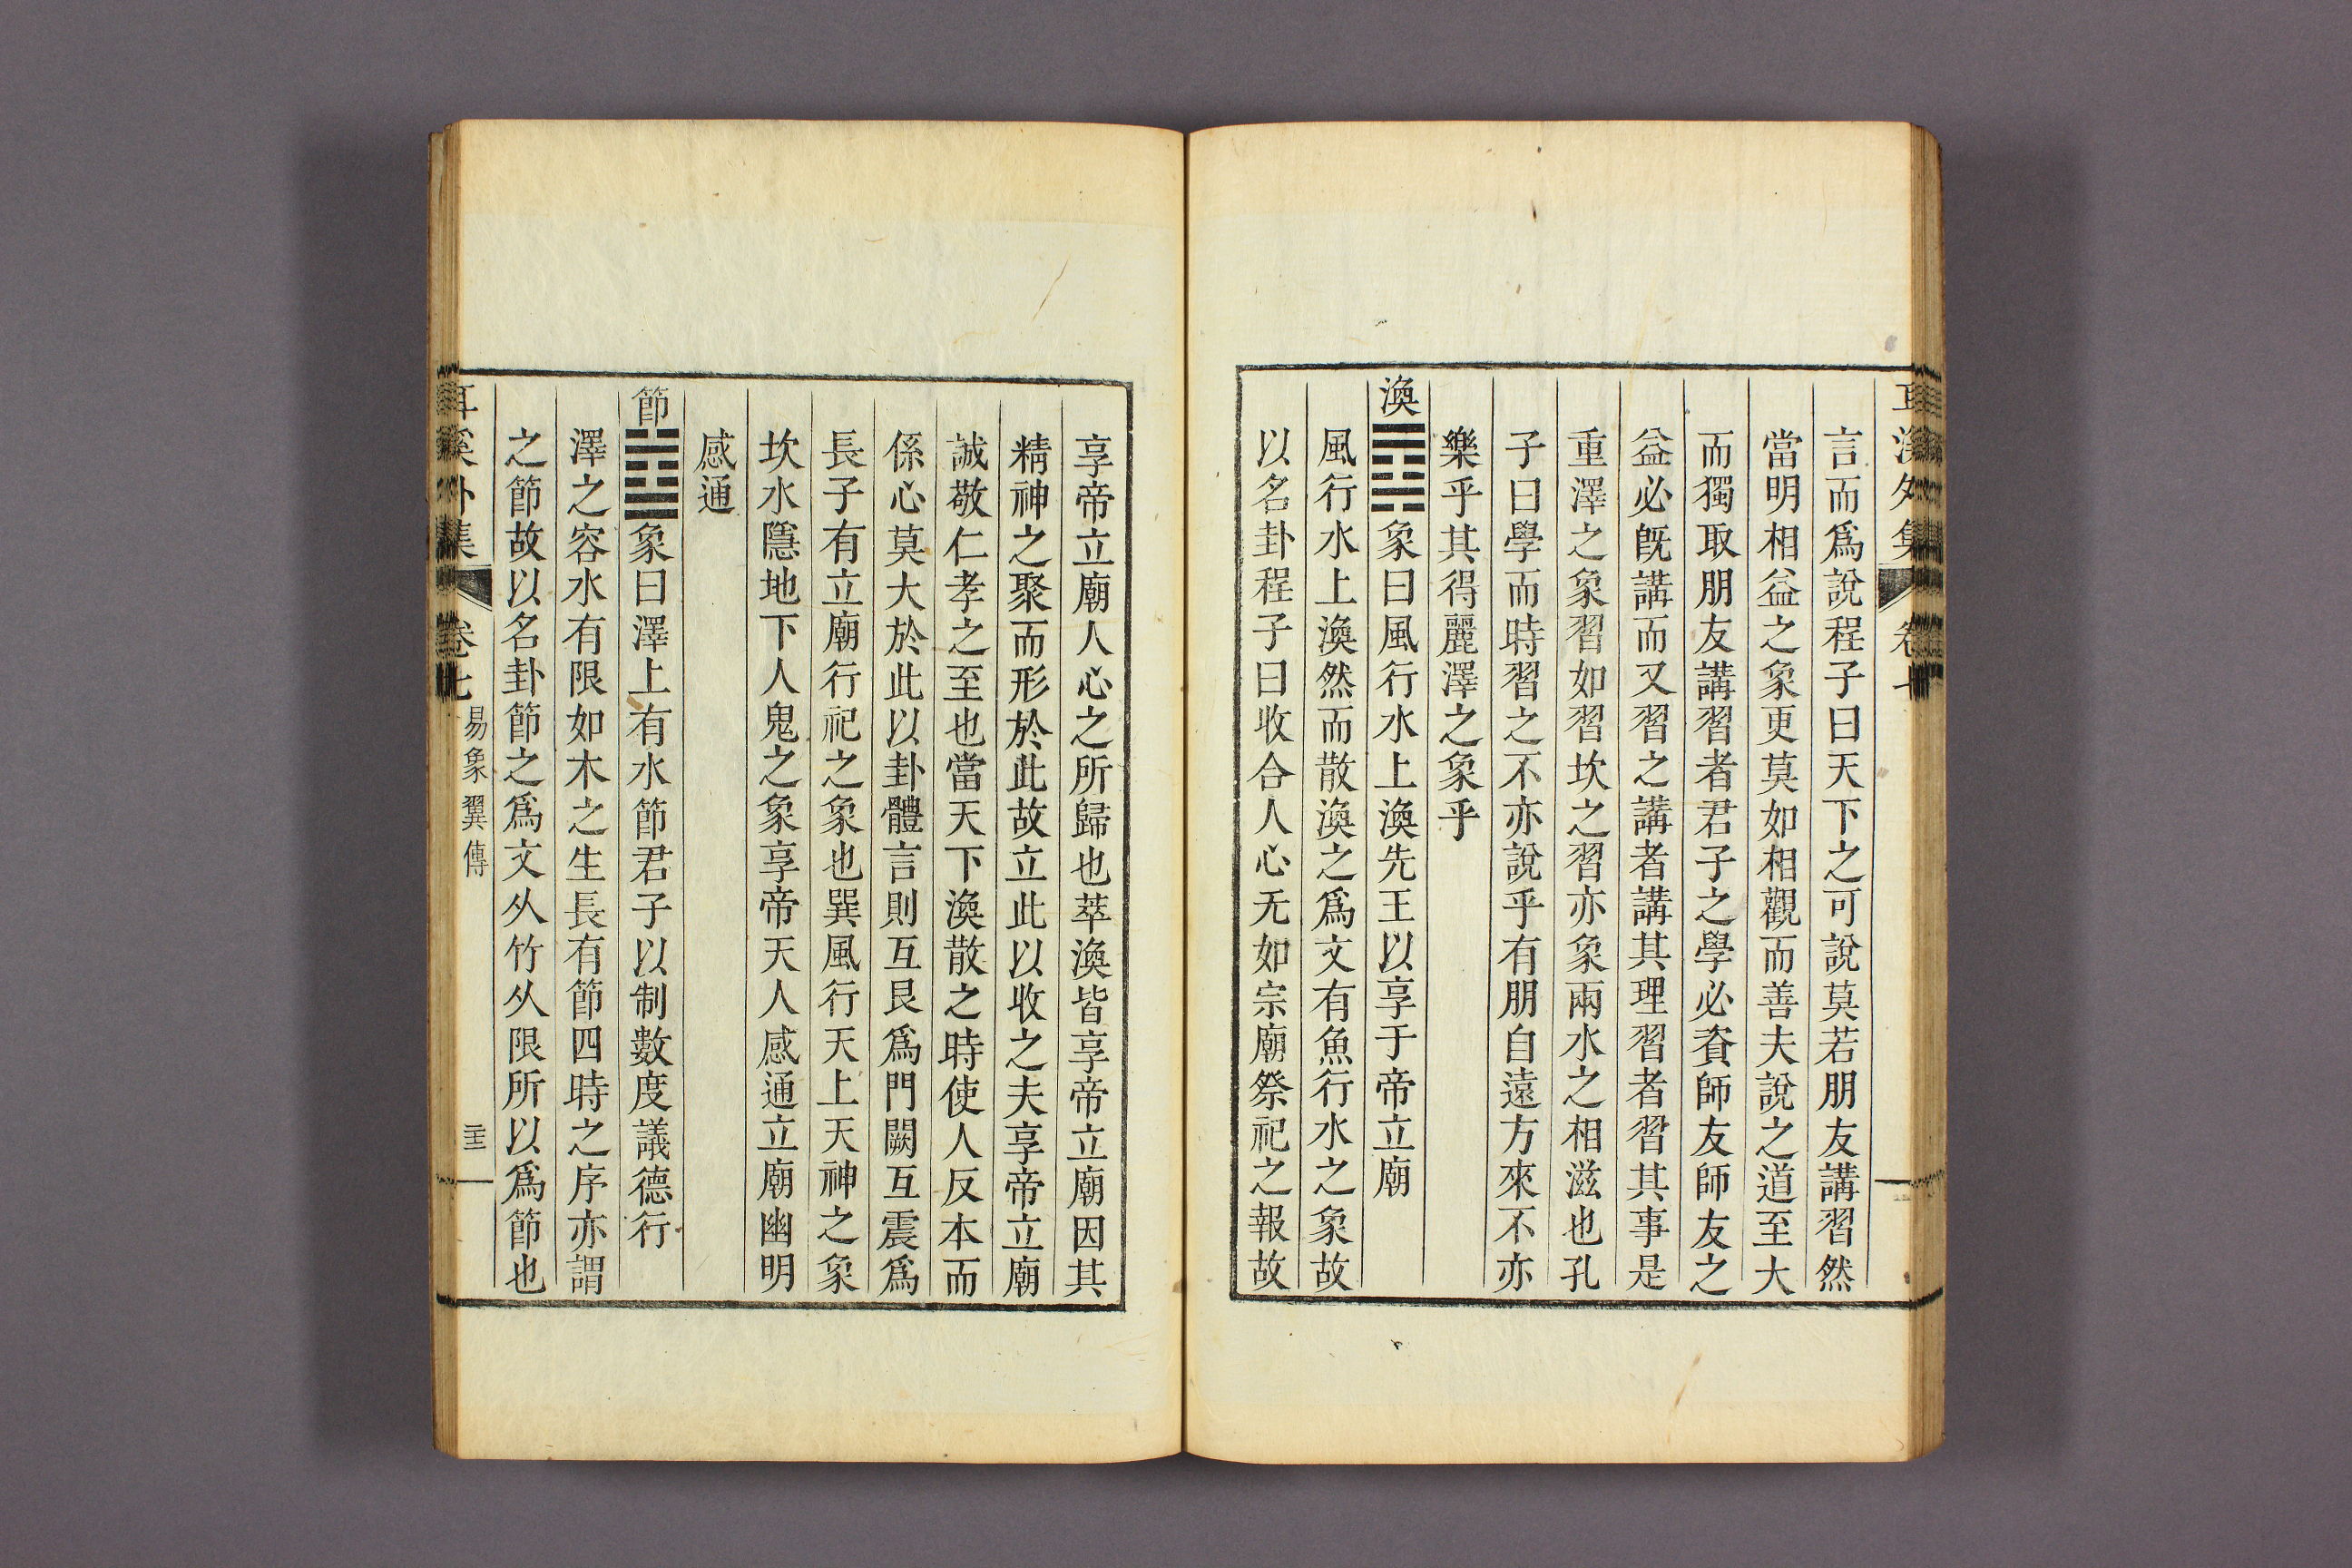 耳溪外集 卷七
言而爲說程子曰天下之可說莫若朋友講習然
當明相益之象更莫如相觀而善夫說之道至大
而獨取朋友講習者君子之學必資師友師友之
益必旣講而又習之講者講其理習者習其事是
重澤之象習如習坎之習亦象兩水之相滋也孔
子曰學而時習之不亦說乎有朋自遠方來不亦
樂乎其得麗澤之象乎
渙䷺象曰風行水上渙先王以享于帝立廟
風行水上渙然而散渙之爲文有魚行水之象故
以名卦程子曰收合人心无如宗廟祭祀之報故
享帝立廟人心之所歸也萃渙皆享帝立廟因其
精神之聚而形於此故立此以收之夫享帝立廟
誠敬仁孝之至也當天下渙散之時使人反本而
係心莫大於此以卦體言則互艮爲門闕互震爲
長子有立廟行祀之象也巽風行天上天神之象
坎水隱地下人鬼之象享帝天人感通立廟幽明
感通
節䷻象曰澤上有水節君子以制數度議德行
澤之容水有限如木之生長有節四時之序亦謂
之節故以名卦節之爲文从竹从限所以爲節也
耳溪外集 卷七 易象翼傳